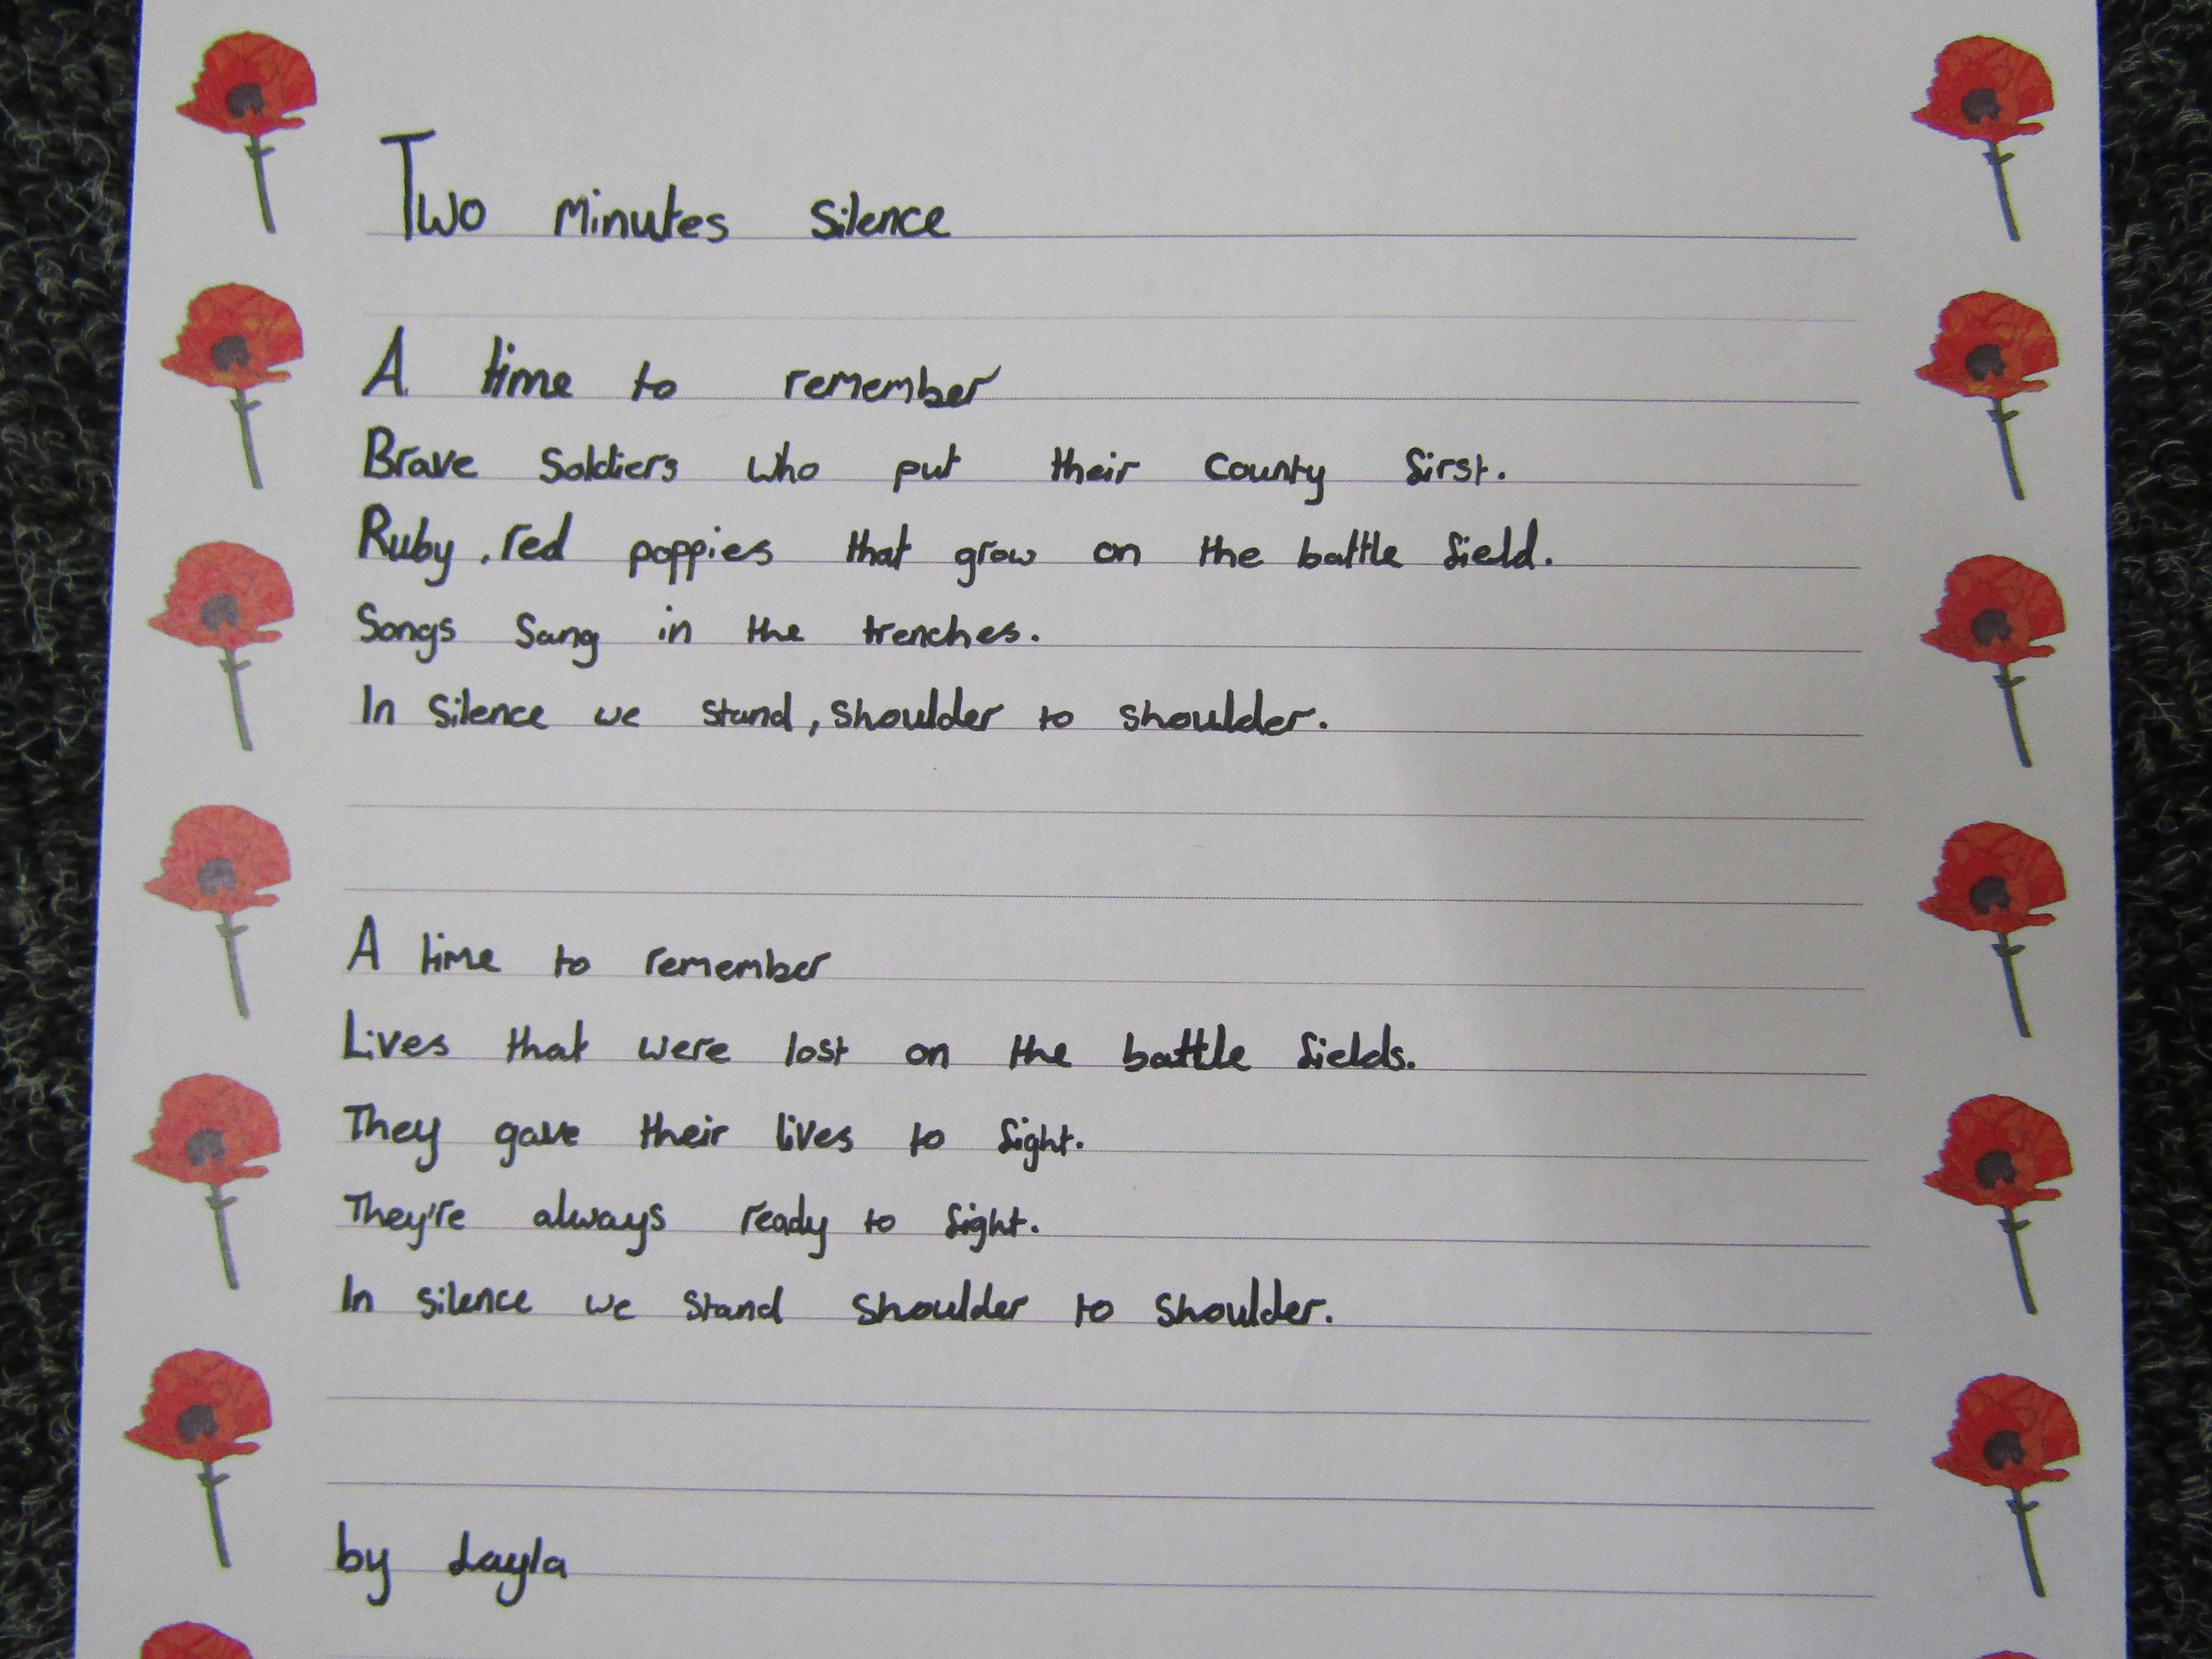 Two minutes silence
A time to remember
Brave soldiers who put their county first.
Ruby, red poppies that grow on the battle field.
Songs sang in the trenches.
In silence we stand, shoulder to shoulder.
A time to remember
Lives that were lost on the battle fields.
They gave their lives to fight.
They're always ready to fight.
In silence we stand shoulder to shoulder.
by Layla